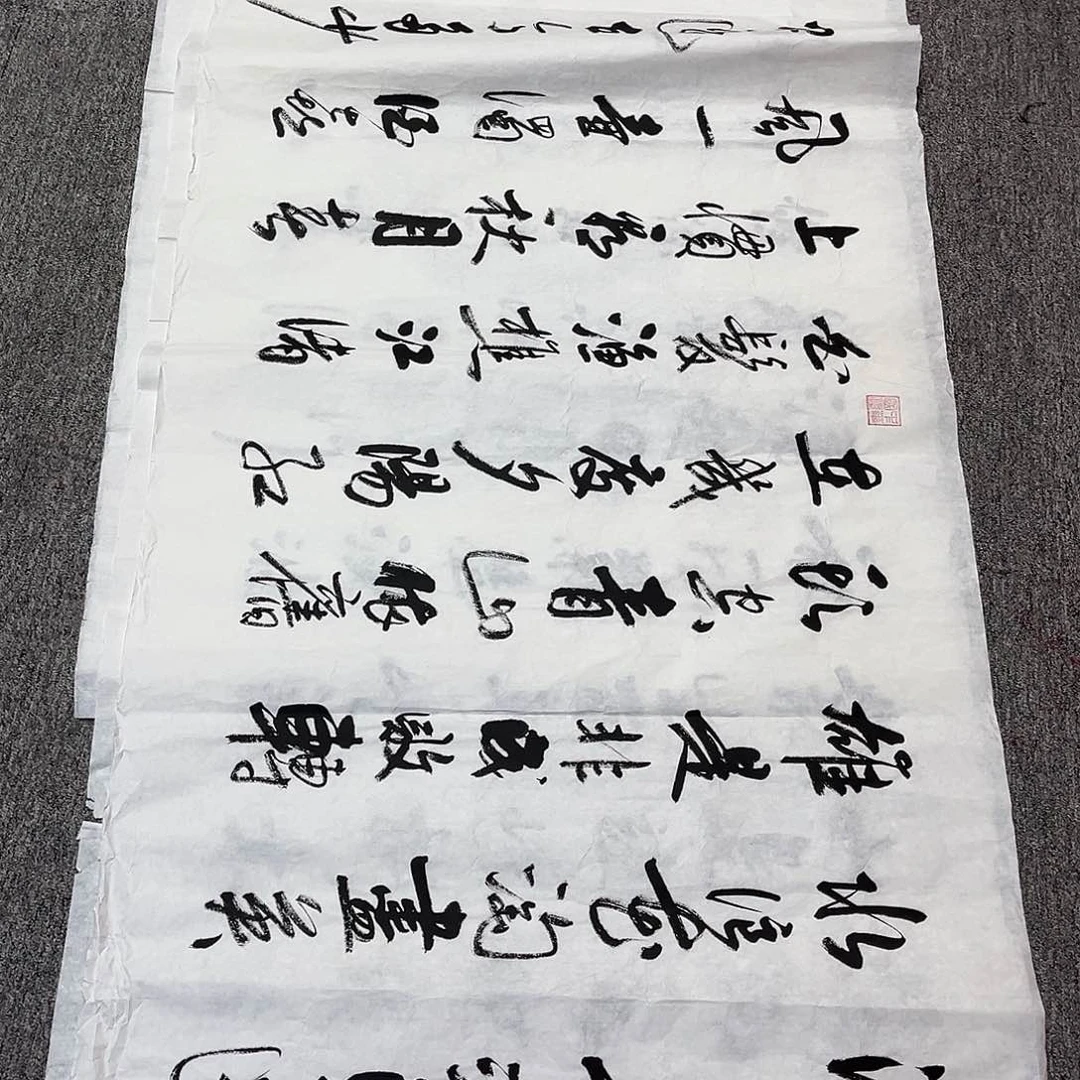 水浪花淘盡英
雄是非成敗轉
頭空青山依舊
在幾度夕陽紅
白髮漁樵江渚
上慣看秋月春
風一壺濁酒喜